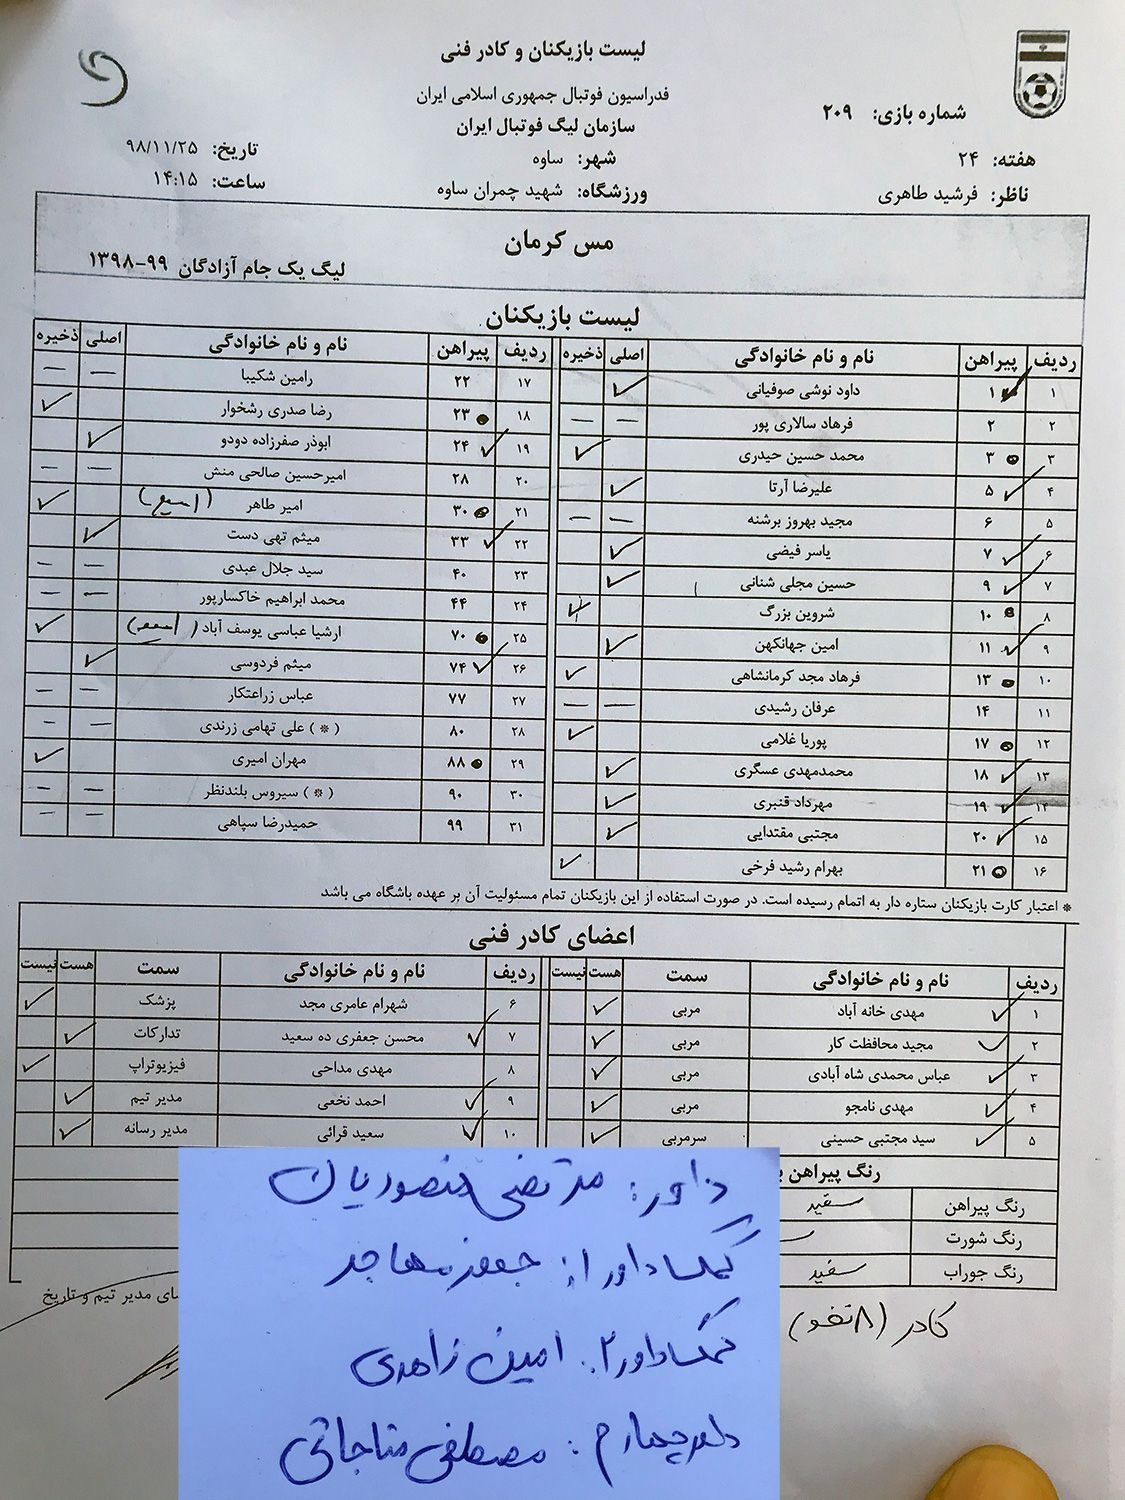 لیست بازیکنان و کادر فنی
فدراسیون فوتبال جمهوری اسلامی ایران
سازمان لیگ فوتبال ایران
شماره بازی: ۲۰۹
هفته: ۲۴
شهر: ساوه
تاریخ: ۹۸/۱۱/۲۵
ناظر: فرشید طاهری
ورزشگاه: شهید چمران ساوه
ساعت: ۱۴:۱۵
مس کرمان
لیگ یک جام آزادگان ۹۹-۱۳۹۸
لیست بازیکنان
ردیف پیراهن نام و نام خانوادگی اصلی ذخیره
۱ ۱ داود نوشی صوفیانی
۲ ۲ فرهاد سالاری پور
۳ ۳ محمد حسین حیدری
۴ ۵ علیرضا آرتا
۵ ۶ مجید بهروز برشنه
۶ ۷ یاسر فیضی
۷ ۹ حسین مجلی شنانی
۸ ۱۰ شروین بزرگ
۹ ۱۱ امین جهانکهن
۱۰ ۱۳ فرهاد مجد کرمانشاهی
۱۱ ۱۴ عرفان رشیدی
۱۲ ۱۷ پوریا غلامی
۱۳ ۱۸ محمدمهدی عسگری
۱۴ ۱۹ مهرداد قنبری
۱۵ ۲۰ مجتبی مقتدایی
۱۶ ۲۱ بهرام رشید فرخی
ردیف پیراهن نام و نام خانوادگی اصلی ذخیره
۱۷ ۲۲ رامین شکیبا
۱۸ ۲۳ رضا صدری رشخوار
۱۹ ۲۴ ابوذر صفرزاده دودو
۲۰ ۲۸ امیرحسین صالحی منش
۲۱ ۳۰ امیر طاهر
۲۲ ۳۳ میثم تهی دست
۲۳ ۴۰ سید جلال عبدی
۲۴ ۴۴ محمد ابراهیم خاکسارپور
۲۵ ۷۰ ارشیا عباسی یوسف آباد
۲۶ ۷۴ میثم فردوسی
۲۷ ۷۷ عباس زراعتکار
۲۸ ۸۰ ( * ) علی تهامی زرندی
۲۹ ۸۸ مهران امیری
۳۰ ۹۰ ( * ) سیروس بلندنظر
۳۱ ۹۹ حمیدرضا سپاهی
* اعتبار کارت بازیکنان ستاره دار به اتمام رسیده است. در صورت استفاده از این بازیکنان تمام مسئولیت آن بر عهده باشگاه می باشد
اعضای کادر فنی
ردیف نام و نام خانوادگی سمت هست نیست
۱ مهدی خانه آباد مربی
۲ مجید محافظت کار مربی
۳ عباس محمدی شاه آبادی مربی
۴ مهدی نامجو مربی
۵ سید مجتبی حسینی سرمربی
ردیف نام و نام خانوادگی سمت هست نیست
۶ شهرام عامری مجد پزشک
۷ محسن جعفری ده سعید تدارکات
۸ مهدی مداحی فیزیوتراپ
۹ احمد نخعی مدیر تیم
۱۰ سعید قرائی مدیر رسانه
رنگ پیراهن
رنگ پیراهن سفید
رنگ شورت
رنگ جوراب سفید
مدیر تیم و تاریخ
کادر (۸ نفر)
داور: مرتضی منصوریان
کمک داور ۱: جعفر مهاجر
کمک داور ۲: امین زاهدی
داور چهارم: مصطفی مناجاتی